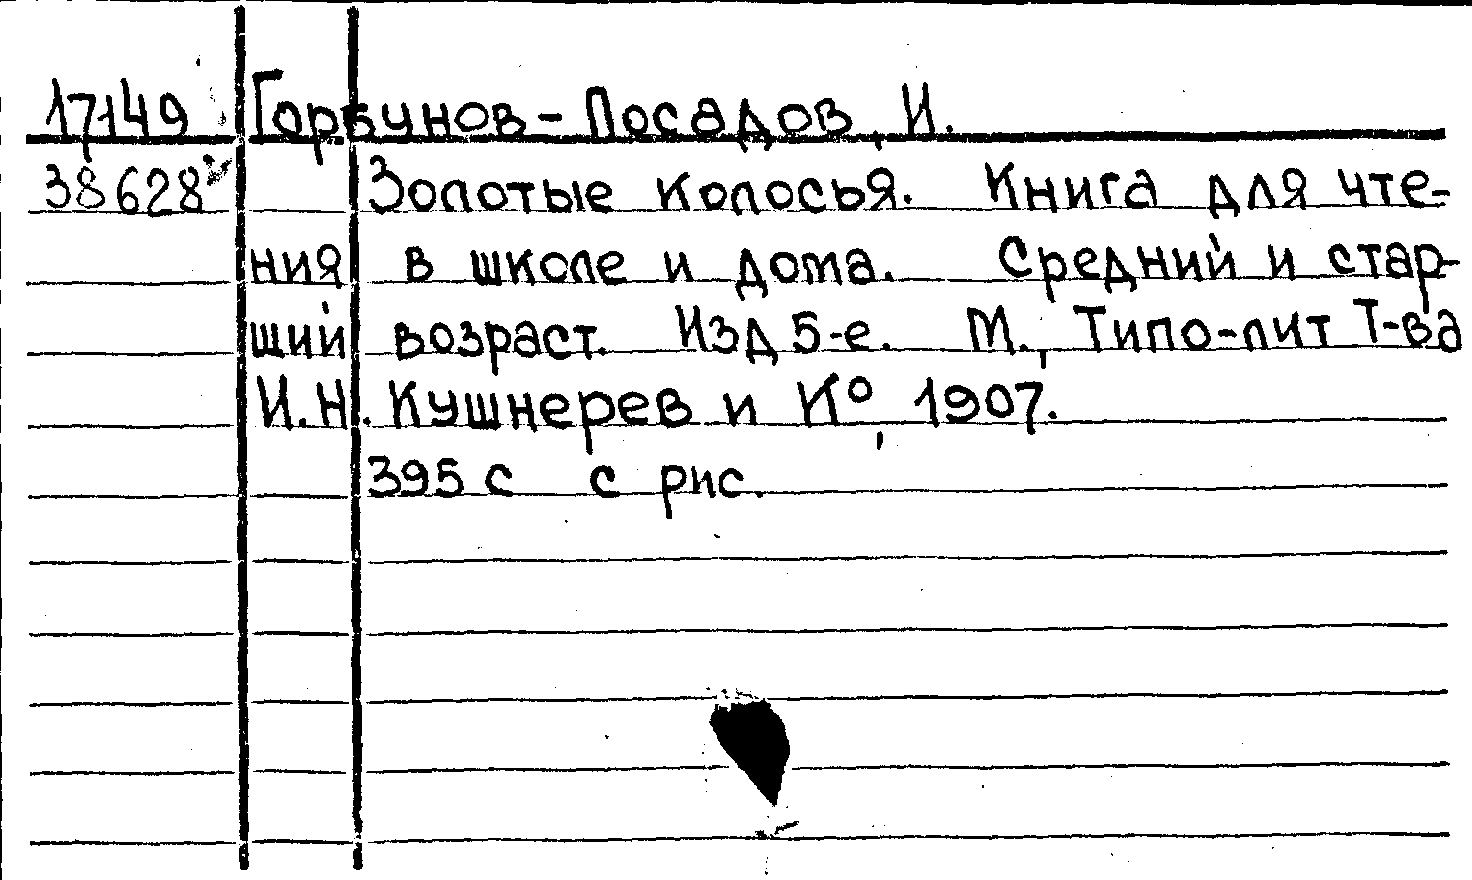 17149 Горбунов-Посадов, И.
38628 Золотые колосья. Книга для чте-
ния в школе и дома. Средний и стар-
ший возраст. Изд 5-е. М., Типо-лит Т-ва
И.Н. Кушнерев и К°, 1907.
395 с с рис.